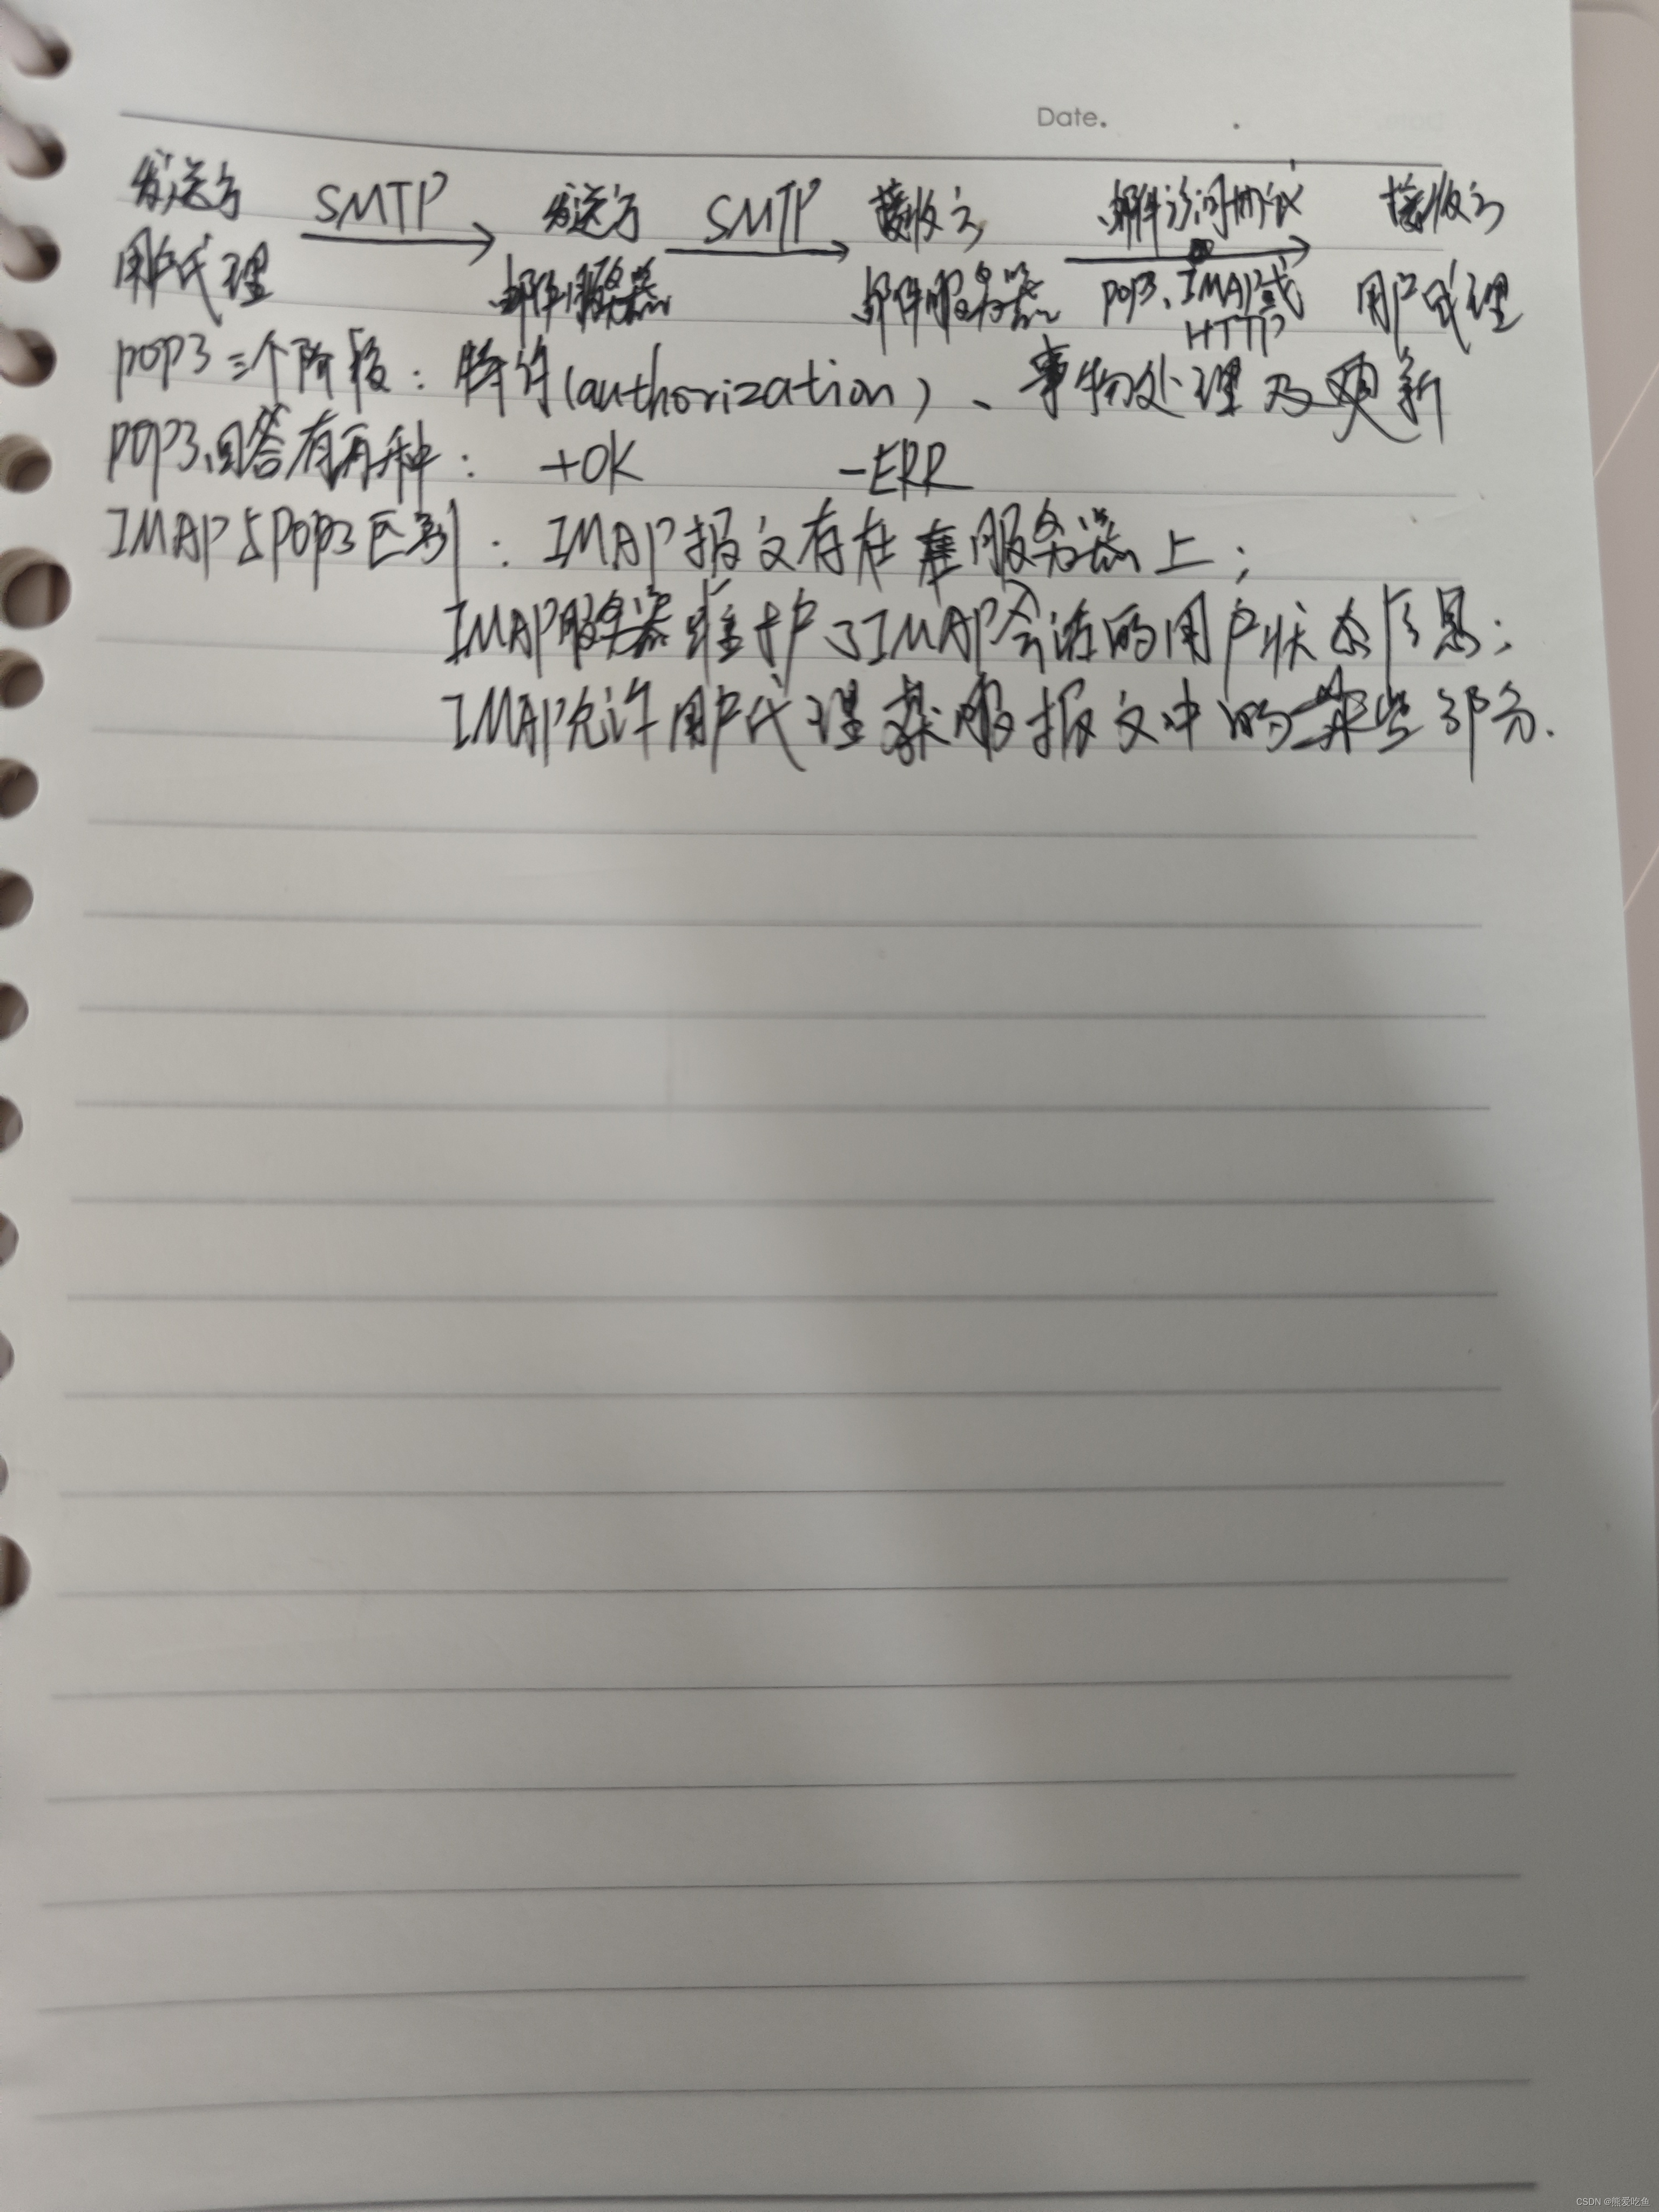 Date.
发送方 SMTP 发送方 SMTP 接收方 邮件访问协议 接收方
用户代理 邮件服务器 邮件服务器 POP3、IMAP或 用户代理
HTTP
POP3三个阶段：特许(authorization)、事物处理及更新
POP3回答有两种： +OK -ERR
IMAP与POP3区别：IMAP报文存在服务器上；
IMAP服务器维护了IMAP会话的用户状态信息；
IMAP允许用户代理获取报文中的某些部分.
CSDN @熊爱吃鱼